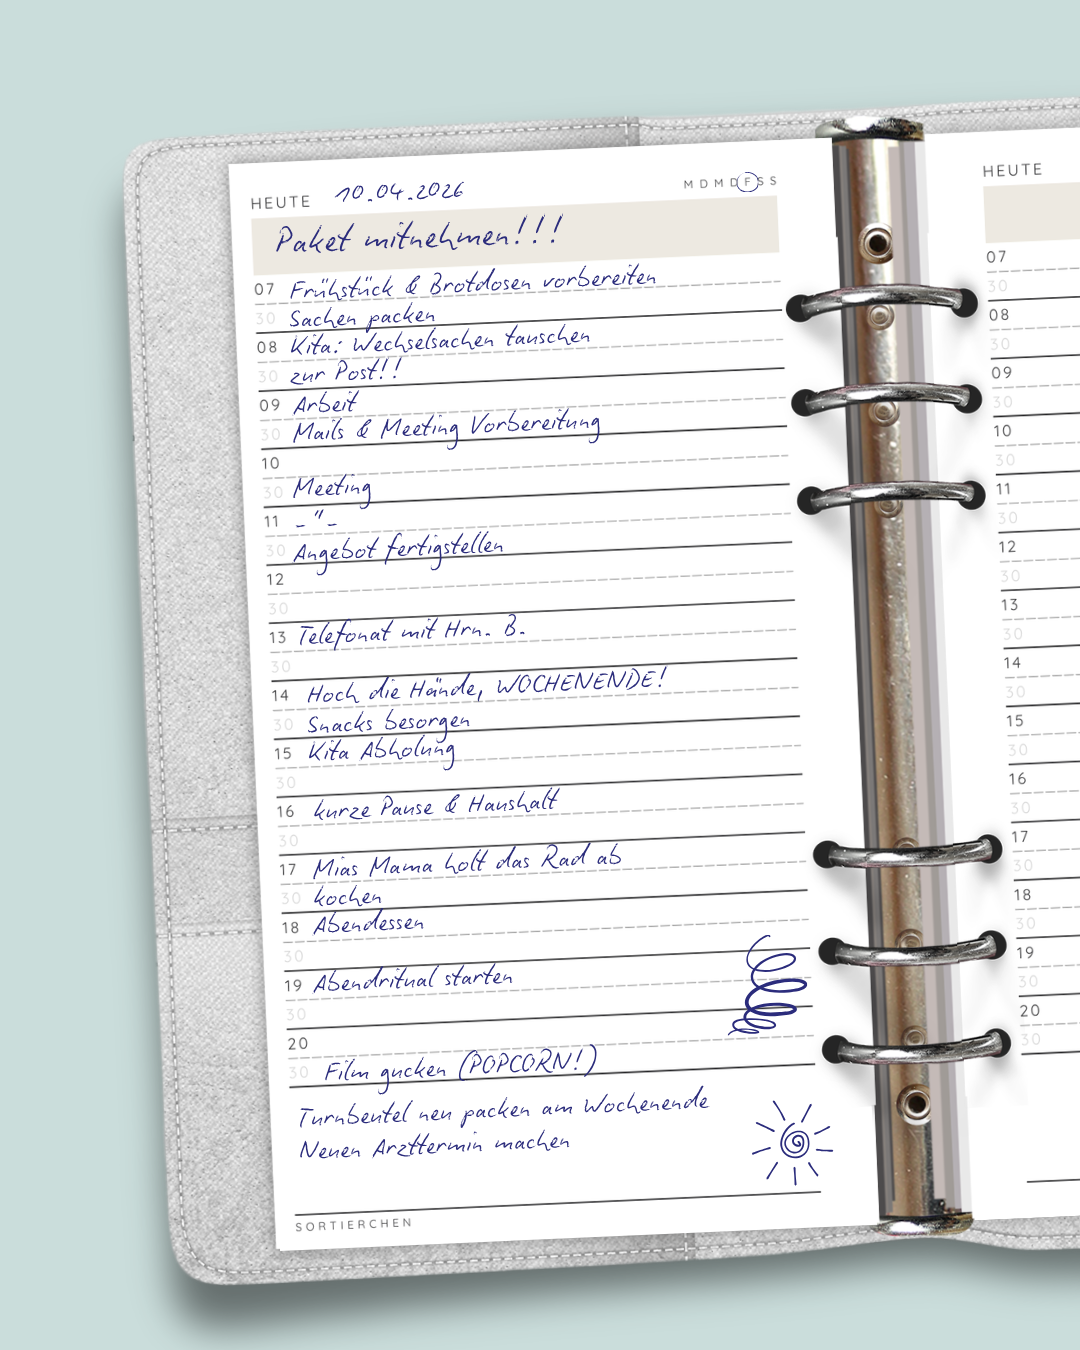 HEUTE 10.04.2026 M D M D F S S
Paket mitnehmen!!!
07 Frühstück & Brotdosen vorbereiten
30 Sachen packen
08 Kita: Wechselsachen tauschen
30 zur Post!!
09 Arbeit
30 Mails & Meeting Vorbereitung
10
30 Meeting
11 - " -
30 Angebot fertigstellen
12
30
13 Telefonat mit Hrn. B.
30
14 Hoch die Hände, WOCHENENDE!
30 Snacks besorgen
15 Kita Abholung
30
16 kurze Pause & Haushalt
30
17 Mias Mama holt das Rad ab
30 kochen
18 Abendessen
30
19 Abendritual starten
30
20
30 Film gucken (POPCORN!)
Turnbeutel neu packen am Wochenende
Neuen Arzttermin machen
SORTIERCHEN
HEUTE
07
30
08
30
09
30
10
30
11
30
12
30
13
30
14
30
15
30
16
30
17
30
18
30
19
30
20
30